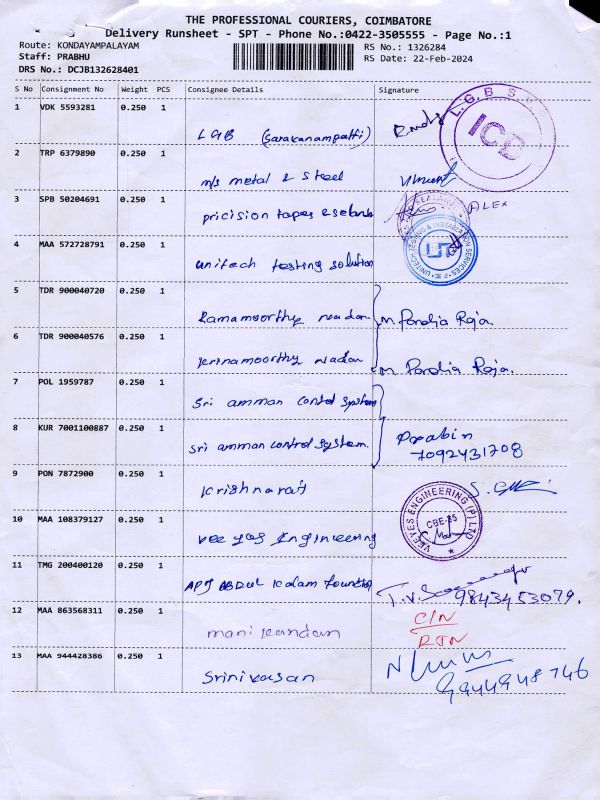 THE PROFESSIONAL COURIERS, COIMBATORE
Delivery Runsheet - SPT - Phone No.:0422-3505555 - Page No.:1
Route: KONDAYAMPALAYAM RS No.: 1326284
Staff: PRABHU RS Date: 22-Feb-2024
DRS No.: DCJB132628401
S No Consignment No Weight PCS Consignee Details Signature
1 VDK 5593281 0.250 1
LGB (Saravanampatti) L.G.B
2 TRP 6379890 0.250 1
m/s metal & steel Vincent
3 SPB 50204691 0.250 1
pricision tapes ALEX
4 MAA 572728791 0.250 1
unitech testing solution UNITECH TESTING & INSTALLATION SERVICES
5 TDR 900040720 0.250 1
Ramamoorthy nadar M. Pandia Raja.
6 TDR 900040576 0.250 1
krinamoorthy nadar M. Pandia Raja.
7 POL 1959787 0.250 1
Sri amman control system
8 KUR 7001100887 0.250 1
Sri amman control system. Prabin
7092431708
9 PON 7872900 0.250 1
Krishnaraj
10 MAA 108379127 0.250 1
vee yes Engineering VEEYES ENGINEERING (P) LTD CBE-35
11 TMG 200400120 0.250 1
APJ ABDUL Kalam 9843453079.
12 MAA 863568311 0.250 1
manikandan C/N
RTN
13 MAA 944428386 0.250 1
Srinivasan 9944948746